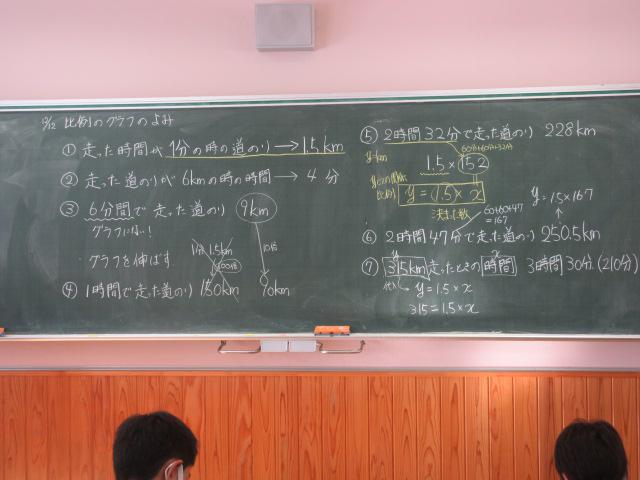 比例のグラフのよみ
① 走った時間が 1分の時の道のり → 1.5km
② 走った道のりが 6kmの時の時間 → 4分
③ 6分間で走った道のり 9km
グラフにない!
グラフを伸ばす
1分 1.5km
100倍
10倍
④ 1時間で走った道のり 150km 90km
⑤ 2時間32分で走った道のり 228km
60分+60分+32分
y=km
1.5×152
比例
y=1.5×x
決まった数
60+60+47
=167
y=1.5×167
⑥ 2時間47分で走った道のり 250.5km
⑦ 315km走ったときの時間 3時間30分(210分)
y x
代入 y=1.5×x
315=1.5×x